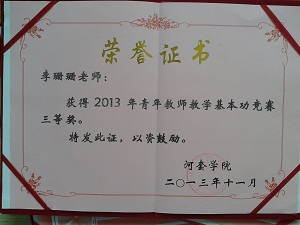 荣誉证书
李珊珊老师：
获得 2013 年青年教师教学基本功竞赛
三等奖。
特发此证，以资鼓励。
河套学院
二〇一三年十一月